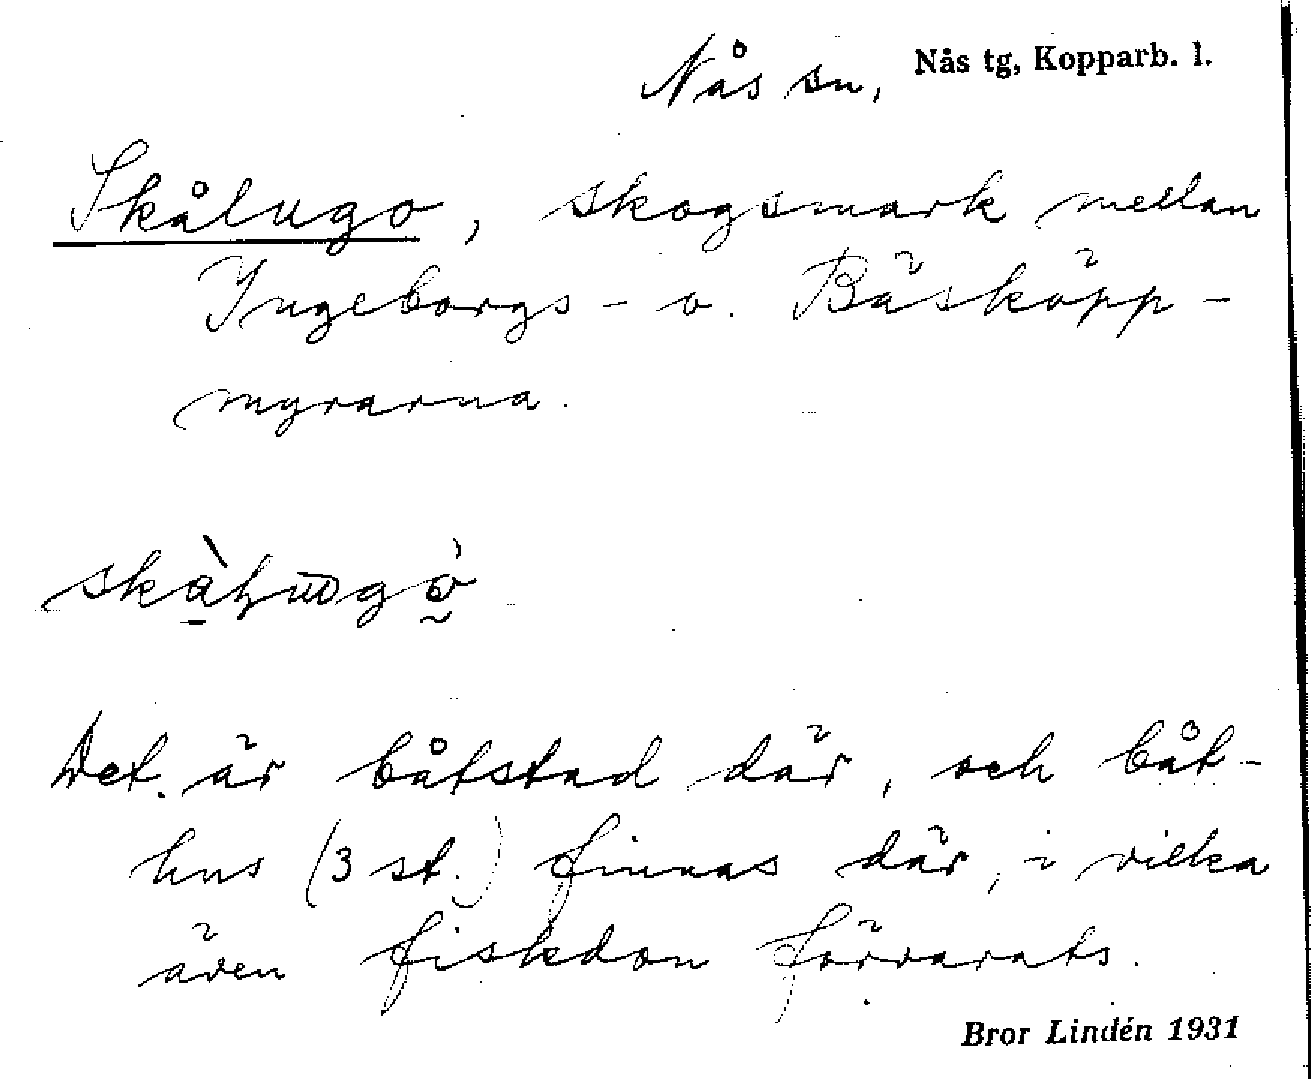 Nås sn, Nås tg, Kopparb. l.
Skålugo, skogsmark mellan
Ingeborgs- o. Bäsköpp-
myrarna.
Det är båtstad där, och båt-
hus (3 st.) finnas där, i vilka
även fiskdon förvarats.
Bror Lindén 1931